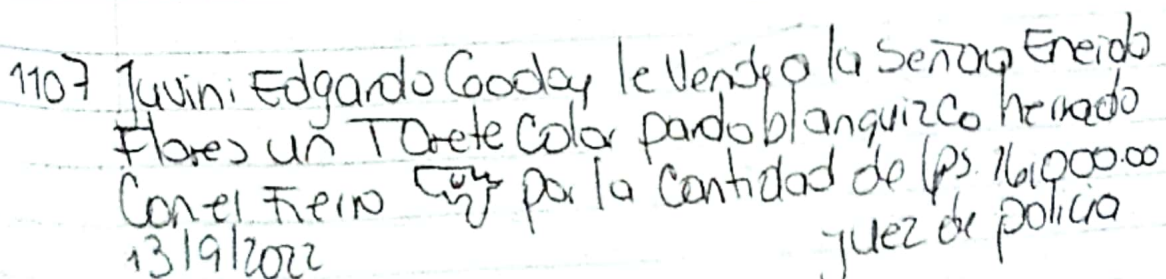 1107 Juvini Edgardo Gooday le Vende a la Señora Eneida
Flores un Torete Color pardo blanquizco herrado
Con el Fierro por la Cantidad de Lps. 16,000.00
13/9/2022 juez de policia